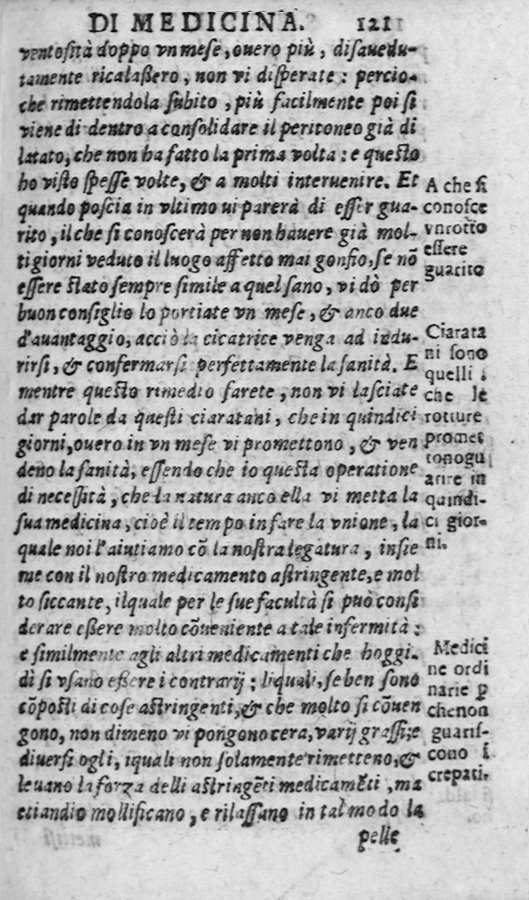 DI MEDICINA. 121
ventosità doppo vn mese, ouero più, disauedu-
tamente ricalaßero, non vi disperate: percio-
che rimettendola subito, più facilmente poi si
viene di dentro a consolidare il peritoneo già di
latato, che non ha fatto la prima volta: e questo
ho visto spesse volte, & a molti interuenire. Et
quando poscia in vltimo ui parerà di esser gua-
rito, il che si conoscerà per non hauere già mol-
ti giorni veduto il luogo affetto mai gonfio, se nō
essere stato sempre simile a quel sano, vi dò per
buon consiglio lo portiate vn mese, & anco due
d'auantaggio, acciò la cicatrice venga ad indu-
rirsi, & confermarsi perfettamente la sanità. E
mentre questo rimedio farete, non vi lasciate
dar parole da questi ciaratani, che in quindici
giorni, ouero in vn mese vi promettono, & ven
deno la sanità, essendo che io questa operatione
di necessità, che la natura anco ella vi metta la
sua medicina, cioè il tempo in fare la vnione, la
quale noi l'aiutiamo cō la nostra legatura, insie
me con il nostro medicamento astringente, e mol
to siccante, ilquale per le sue facultà si può consi
derare eßere molto cōueniente a tale infermità:
e similmente agli altri medicamenti che hoggi-
dì si vsano eßere i contrarij: liquali, se ben sono
cōposti di cose astringenti, & che molto si cōuen
gono, non dimeno vi pongono cera, varij grassi, e
diuersi ogli, iquali non solamente rimetteno, &
leuano la forza delli astringēti medicamēti, ma
etiandio mollificano, e rilassano in tal modo la
pelle
A che si
conosce
vn rotto
essere
guarito
Ciarata
ni sono
quelli,
che le
rotture
promet
tono gu
arire in
quindi-
ci gior-
ni.
Medici
ne ordi
narie p
che non
guaris-
cono i
crepati.